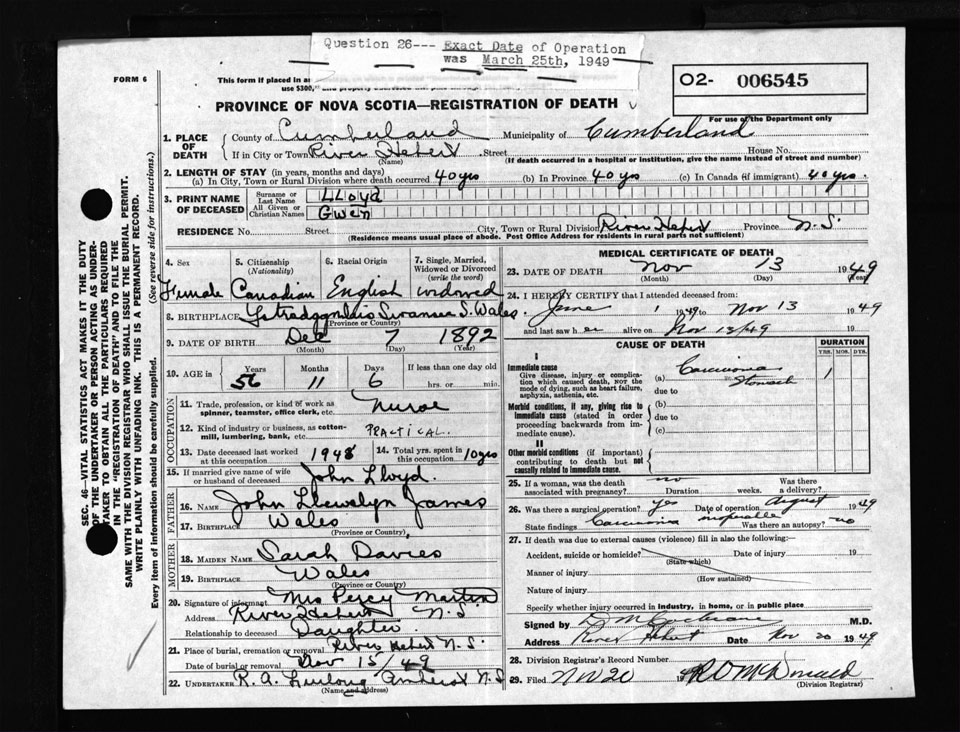 Question 26--- Exact Date of Operation
was March 25th, 1949
FORM 6
This form if placed in an
use $300,
O2- 006545
For use of the Department only
PROVINCE OF NOVA SCOTIA—REGISTRATION OF DEATH
SEC. 46—VITAL STATISTICS ACT MAKES IT THE DUTY
OF THE UNDERTAKER OR PERSON ACTING AS UNDER-
TAKER TO OBTAIN ALL THE PARTICULARS REQUIRED
IN THE "REGISTRATION OF DEATH" AND TO FILE THE
SAME WITH THE DIVISION REGISTRAR WHO SHALL ISSUE THE BURIAL PERMIT.
WRITE PLAINLY WITH UNFADING INK. THIS IS A PERMANENT RECORD.
Every item of information should be carefully supplied. (See reverse side for instructions.)
1. PLACE OF DEATH
County of Cumberland Municipality of Cumberland
If in City or Town River Hebert Street House No.
(Name) (If death occurred in a hospital or institution, give the name instead of street and number)
2. LENGTH OF STAY (in years, months and days)
(a) In City, Town or Rural Division where death occurred 40 yrs (b) In Province 40 yrs (c) In Canada (if immigrant) 40 yrs.
3. PRINT NAME OF DECEASED
Surname or Last Name LLoyd
All Given or Christian Names Gwen
RESIDENCE No. Street City, Town or Rural Division River Hebert Province N.S.
(Residence means usual place of abode. Post Office Address for residents in rural parts not sufficient)
4. Sex 5. Citizenship (Nationality) 6. Racial Origin 7. Single, Married, Widowed or Divorced (write the word)
Female Canadian English widowed
8. BIRTHPLACE Swansea S. Wales.
(Province or Country)
9. DATE OF BIRTH Dec 7 1892
(Month) (Day) (Year)
10. AGE in Years Months Days If less than one day old
56 11 6 hrs. or min.
OCCUPATION
11. Trade, profession, or kind of work as spinner, teamster, office clerk, etc. Nurse
12. Kind of industry or business, as cotton-mill, lumbering, bank, etc. PRACTICAL.
13. Date deceased last worked at this occupation 1948 14. Total yrs. spent in this occupation 10 yrs
15. If married give name of wife or husband of deceased John Llwyd.
FATHER
16. Name John Llewelyn James
17. Birthplace Wales
(Province or Country)
MOTHER
18. MAIDEN NAME Sarah Davies
19. Birthplace Wales
(Province or Country)
20. Signature of informant Mrs Percy Martin
Address River Hebert N.S.
Relationship to deceased Daughter
21. Place of burial, cremation or removal River Hebert N.S.
Date of burial or removal Nov 15/49
22. UNDERTAKER R. A. Furlong Amherst N.S
(Name and address)
MEDICAL CERTIFICATE OF DEATH
23. DATE OF DEATH Nov 13 1949
(Month) (Day) (Year)
24. I HEREBY CERTIFY that I attended deceased from:
June 1 1949 to Nov 13 1949
and last saw her alive on Nov 13/49 19
CAUSE OF DEATH DURATION
YRS. MOS. DYS.
I
Immediate cause
Give disease, injury or complica-
tion which caused death, NOT the
mode of dying, such as heart failure,
asphyxia, asthenia, etc.
(a) Carcinoma Stomach 1
due to
Morbid conditions, if any, giving rise to
immediate cause (stated in order
proceeding backwards from im-
mediate cause).
(b)
due to
(c)
II
Other morbid conditions (if important)
contributing to death but not
causally related to immediate cause.
25. If a woman, was the death associated with pregnancy? no Duration weeks. Was there a delivery?
26. Was there a surgical operation? yes Date of operation August 1949
State findings Carcinoma inoperable Was there an autopsy? no
27. If death was due to external causes (violence) fill in also the following:—
Accident, suicide or homicide? Date of injury 19
(State which)
Manner of injury
(How sustained)
Nature of injury
Specify whether injury occurred in industry, in home, or in public place
Signed by D M Cochrane M.D.
Address River Hebert Date Nov 20 1949
28. Division Registrar's Record Number
29. Filed Nov 20 19 R D McDonald
(Division Registrar)